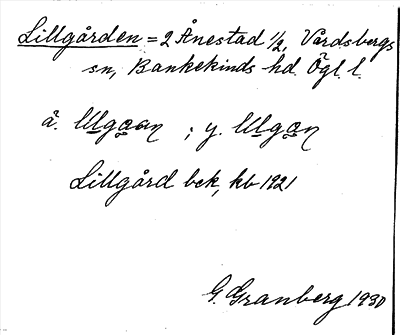 Lillgården = 2 Ånestad 1/2, Vårdsbergs
sn, Bankekinds hd. Ögl. l.
ä. lllgaan ; y. lllgan
Lillgård bek, kb 1921
G. Granberg 1930